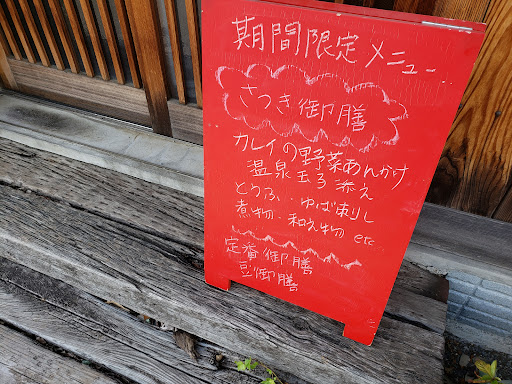 期間限定メニュー
さつき御膳
カレイの野菜あんかけ
温泉玉子添え
とうふ、ゆば刺し
煮物、和え物 etc
定番御膳
豆御膳